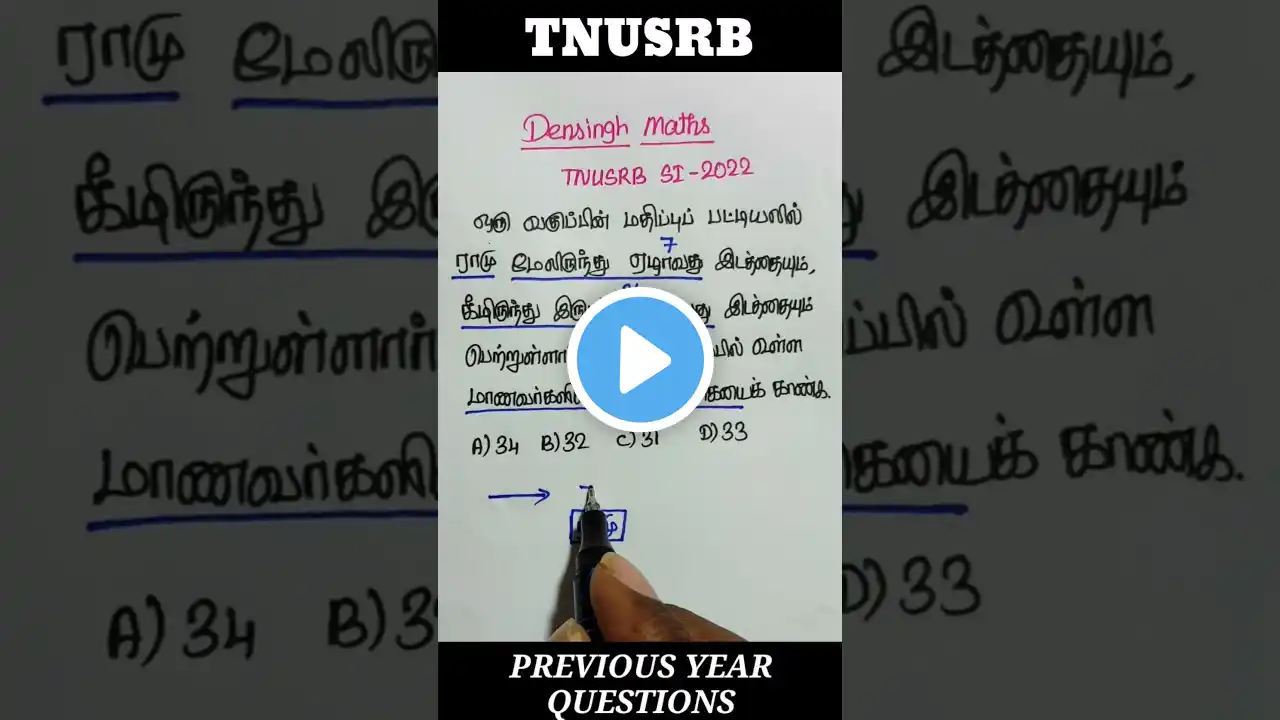 TNUSRB
Densingh Maths
TNUSRB SI-2022
ஒரு வகுப்பின் மதிப்புப் பட்டியலில்
7
ராமு மேலிருந்து ஏழாவது இடத்தையும்,
கீழிருந்து இடத்தையும்
உள்ள
காண்க.
A) 34 B) 32 C) 31 D) 33
PREVIOUS YEAR
QUESTIONS